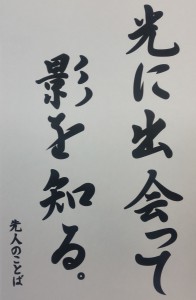 光に出会って
影を知る。
先人のことば